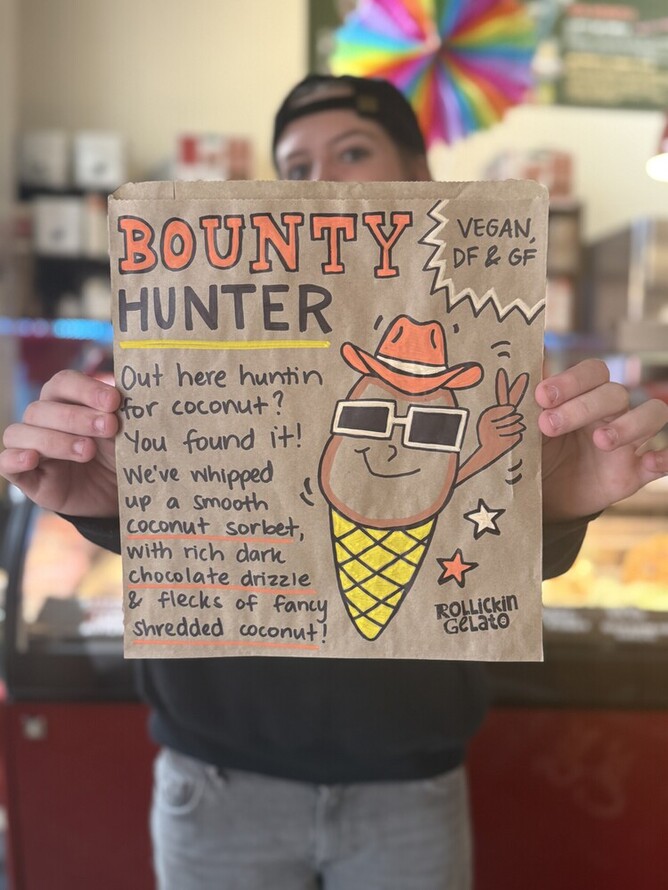 BOUNTY
HUNTER
VEGAN,
DF & GF
Out here huntin
for coconut?
You found it!
We've whipped
up a smooth
coconut sorbet,
with rich dark
chocolate drizzle
& flecks of fancy
shredded coconut!
ROLLICKIN
GELATO